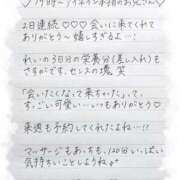 19時〜 アイネイン予約のお兄さん♪
2日連続♡♡♡会いに来てくれて
ありがとう〜嬉しすぎるよ…!
れいの3日分の栄養分(差し入れ)も
さすがです、センスの塊、笑
「会いたくなって来ちゃった」って、
すっごい可愛い…いつもありがとう
来週も予約してくれたよね…!?
マッサージもあっちも、120分いっぱい
気持ちいことしようね